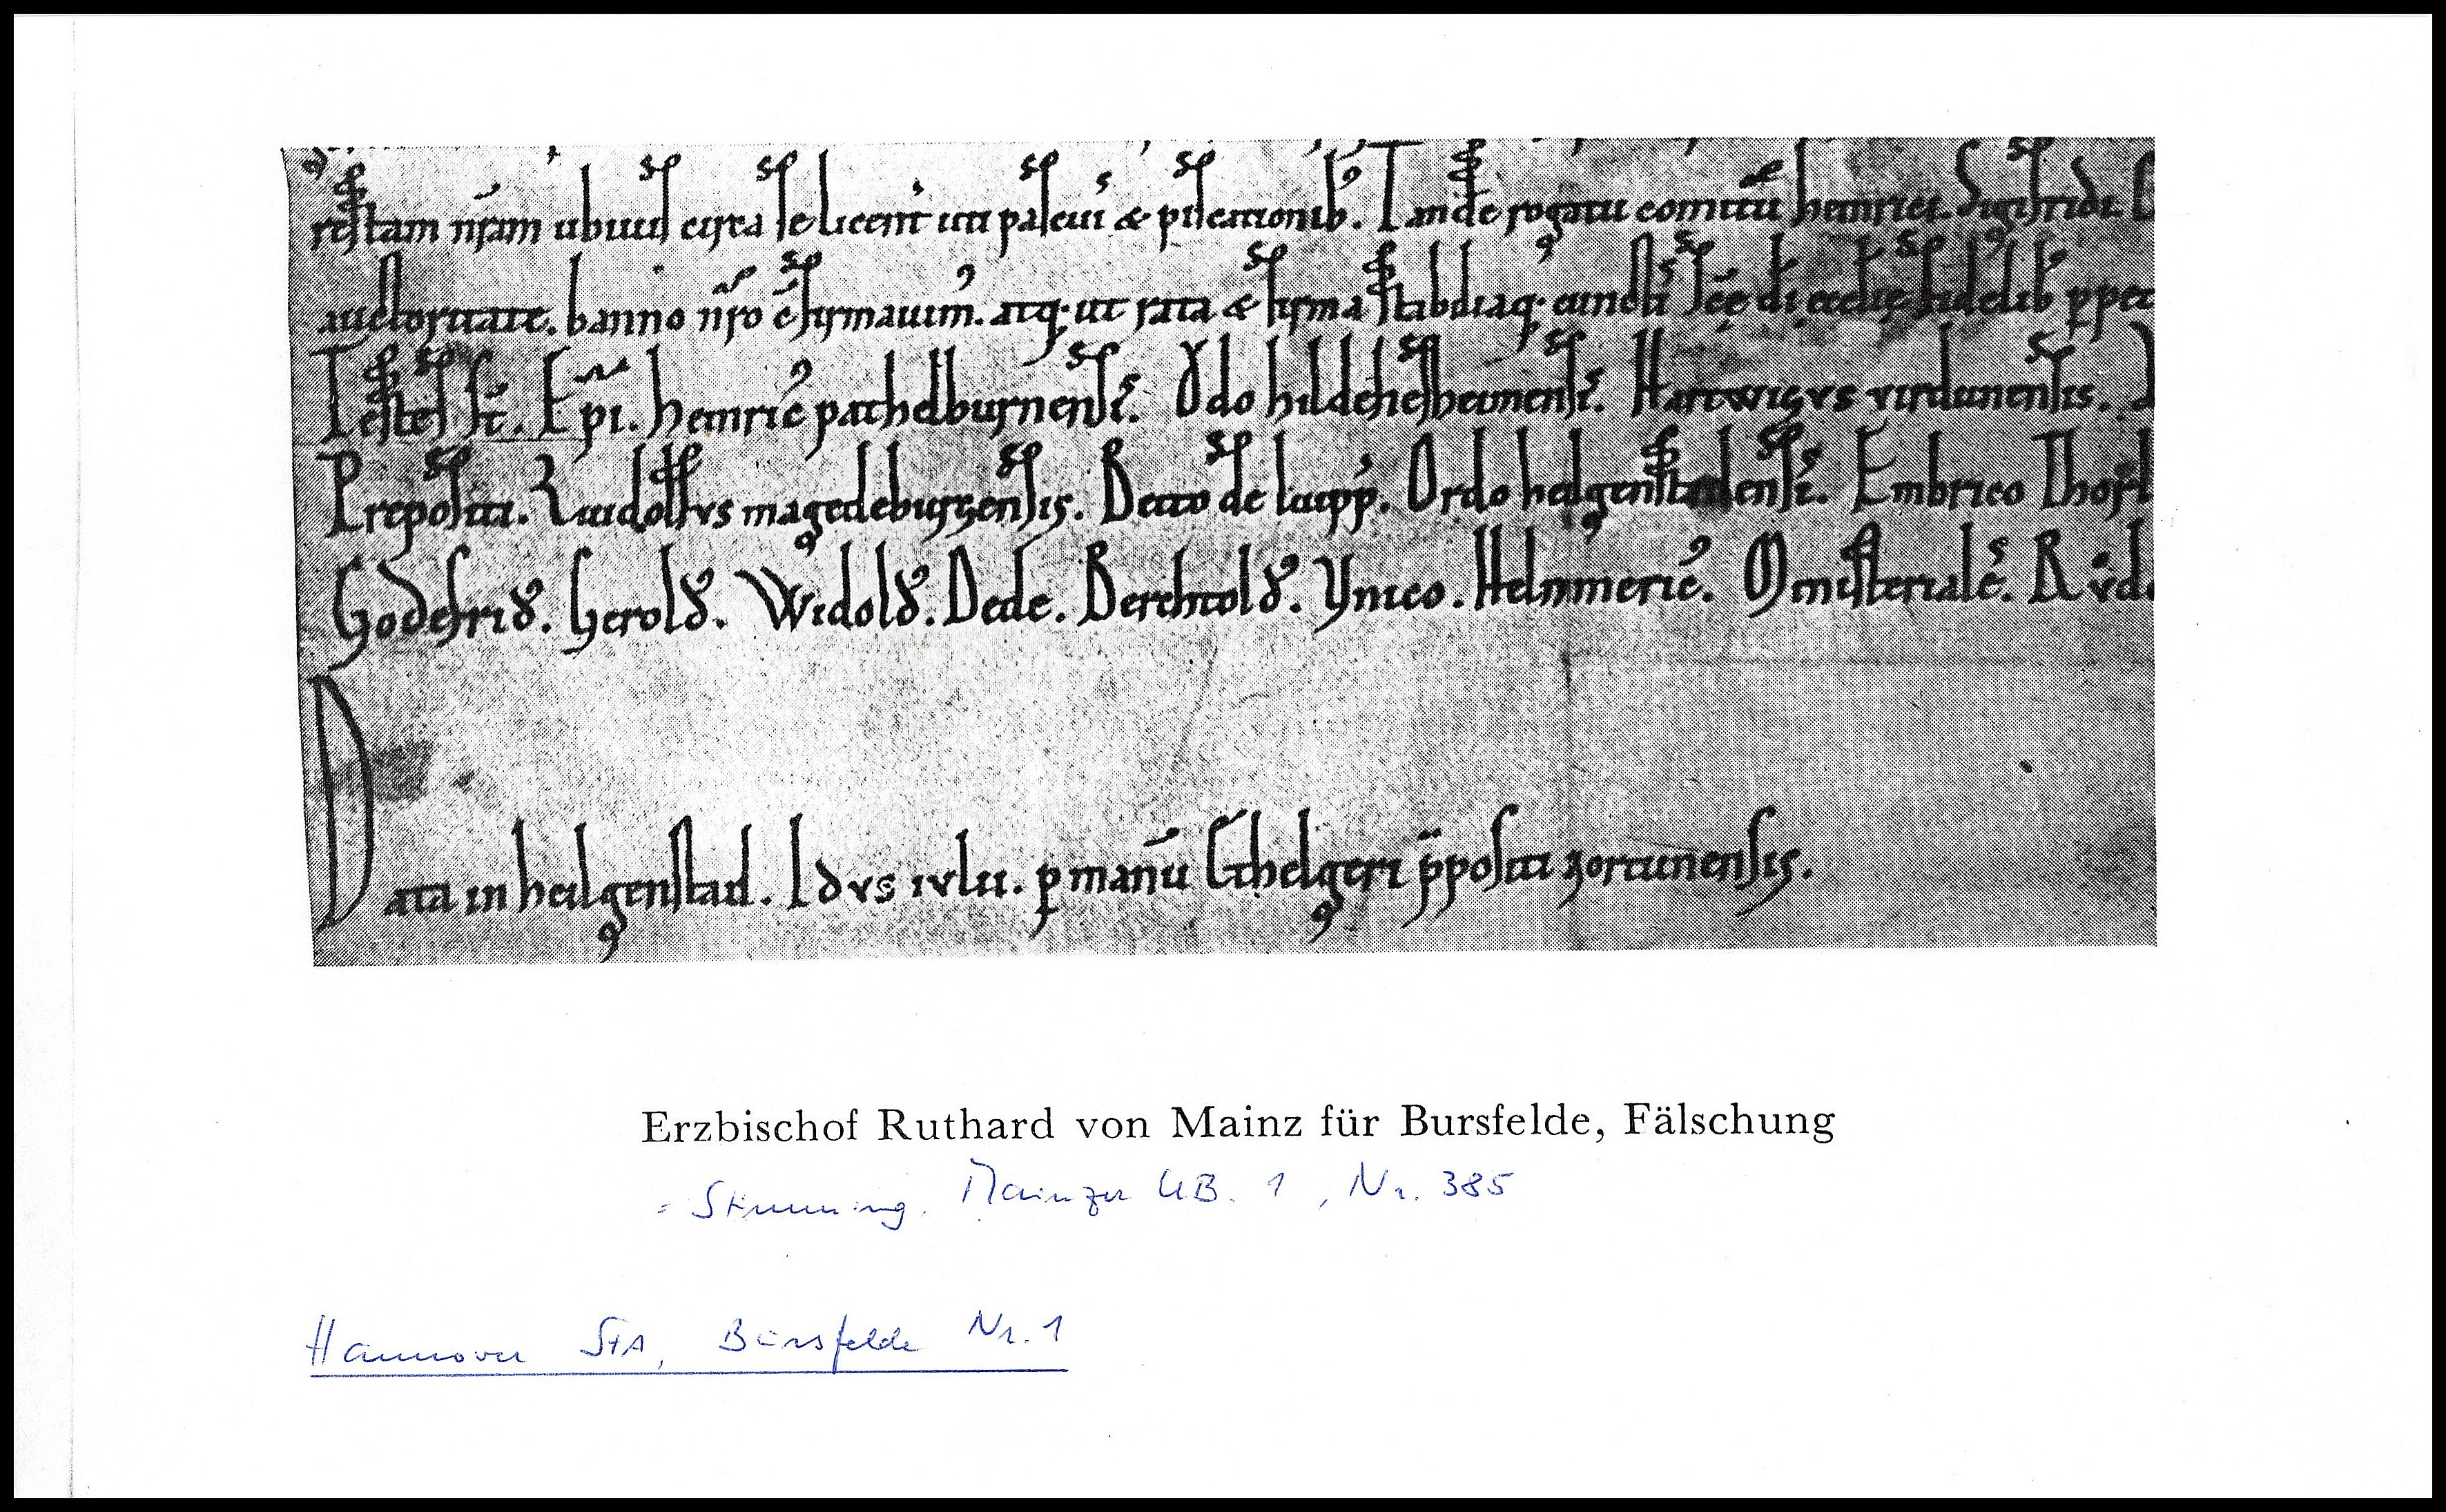 restam nr̄am ubiuis circa se licent uti pascuis & piscationib'. Tande rogatu comitū heinrici. Sigifridi
auctoritate. banno nr̄o c̄firmauim'. atq; ut rata & firma stabiliaq; cunctis sc̄ę di ecclię fidelib' ꝑpet
Testes st̄. Ep̄i. heinric' pathelburnensis. Vdo hildenesheimensis. Hartwigvs virdunensis.
Prepositi. Ruidolfvs magedeburgensis. Betto de luipp'. Ordo heilgenstadensis. Embrico
Godefrid'. Gerold'. Widold'. Dede. Berchtold'. Ynico. Helmmeric'. Ministeriales. Rvd
Data in heilgenstad. Idvs ivlii. ꝑ manū Ethelgeri p̄positi zortunensis.
Erzbischof Ruthard von Mainz für Bursfelde, Fälschung
= Stimming, Mainzer UB. 1, Nr. 385
Hannover StA, Bursfelde Nr. 1